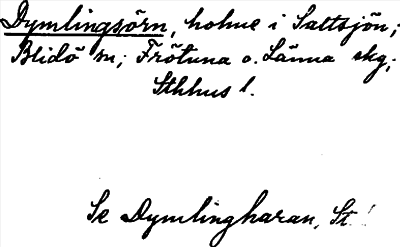 Dymlingsörn, holme i Saltsjön;
Blidö sn; Frötuna o. Länna skg;
Sthhus l.
Se Dymlingharan, St.